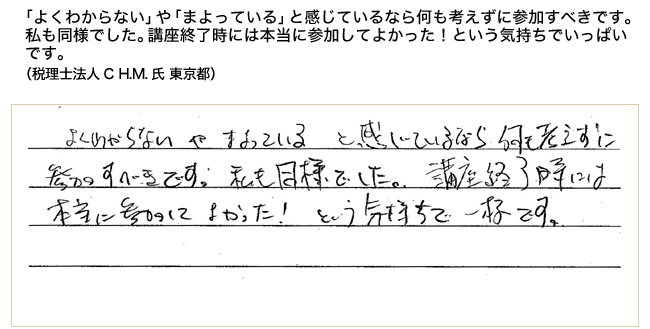 「よくわからない」や「まよっている」と感じているなら何も考えずに参加すべきです。
私も同様でした。講座終了時には本当に参加してよかった！という気持ちでいっぱい
です。
（税理士法人C H.M.氏 東京都）
よくわからない や まよっている と感じているなら 何も考えずに
参加すべきです。私も同様でした。講座終了時には
本当に参加して よかった！ という気持ちで一杯です。